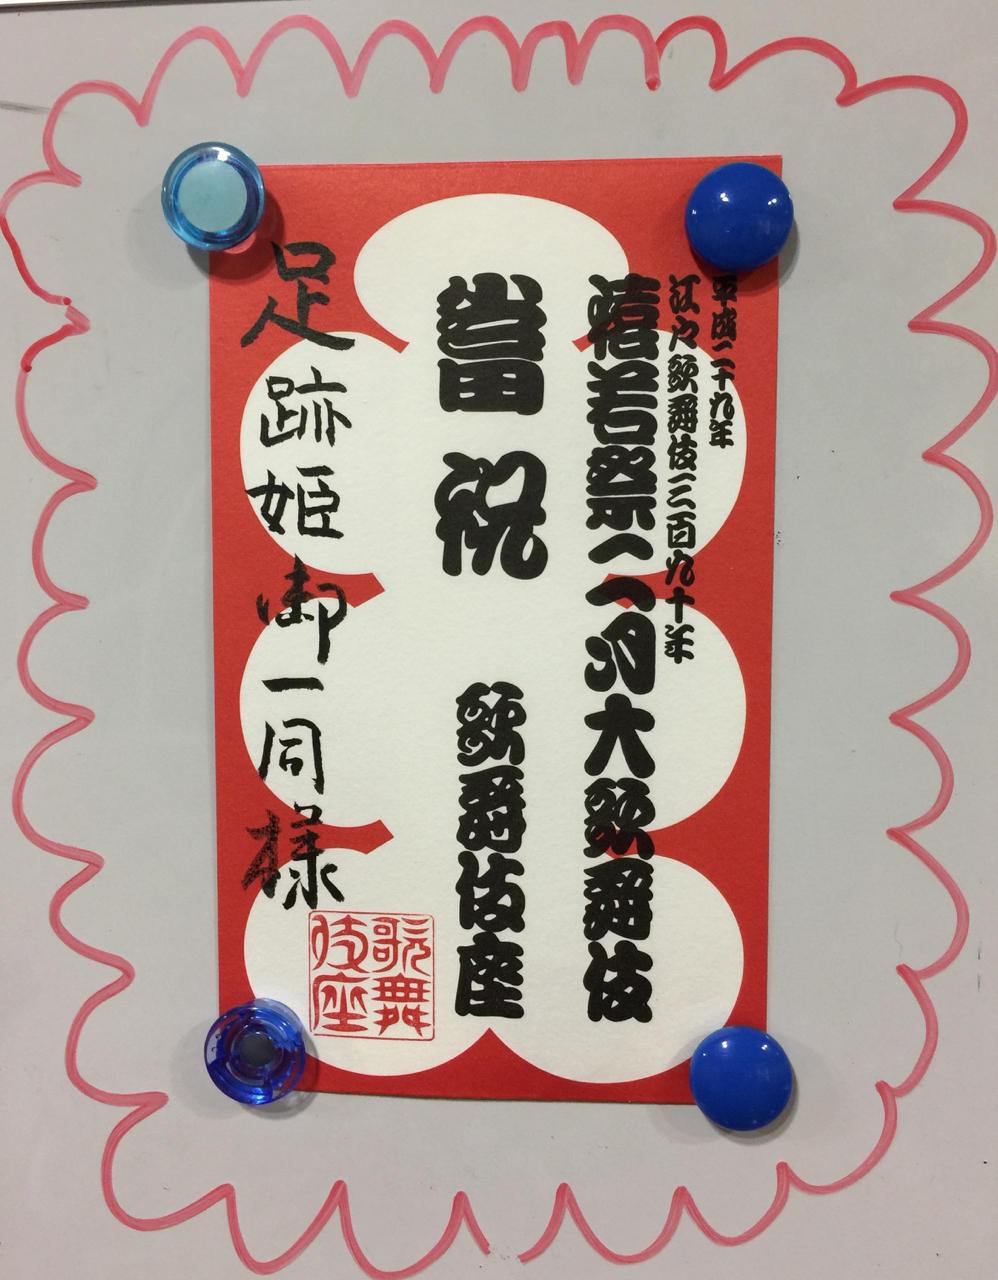 平成二十九年
江戸歌舞伎三百九十年
猿若祭二月大歌舞伎
當祝 歌舞伎座
足跡姫御一同様
歌舞
伎座